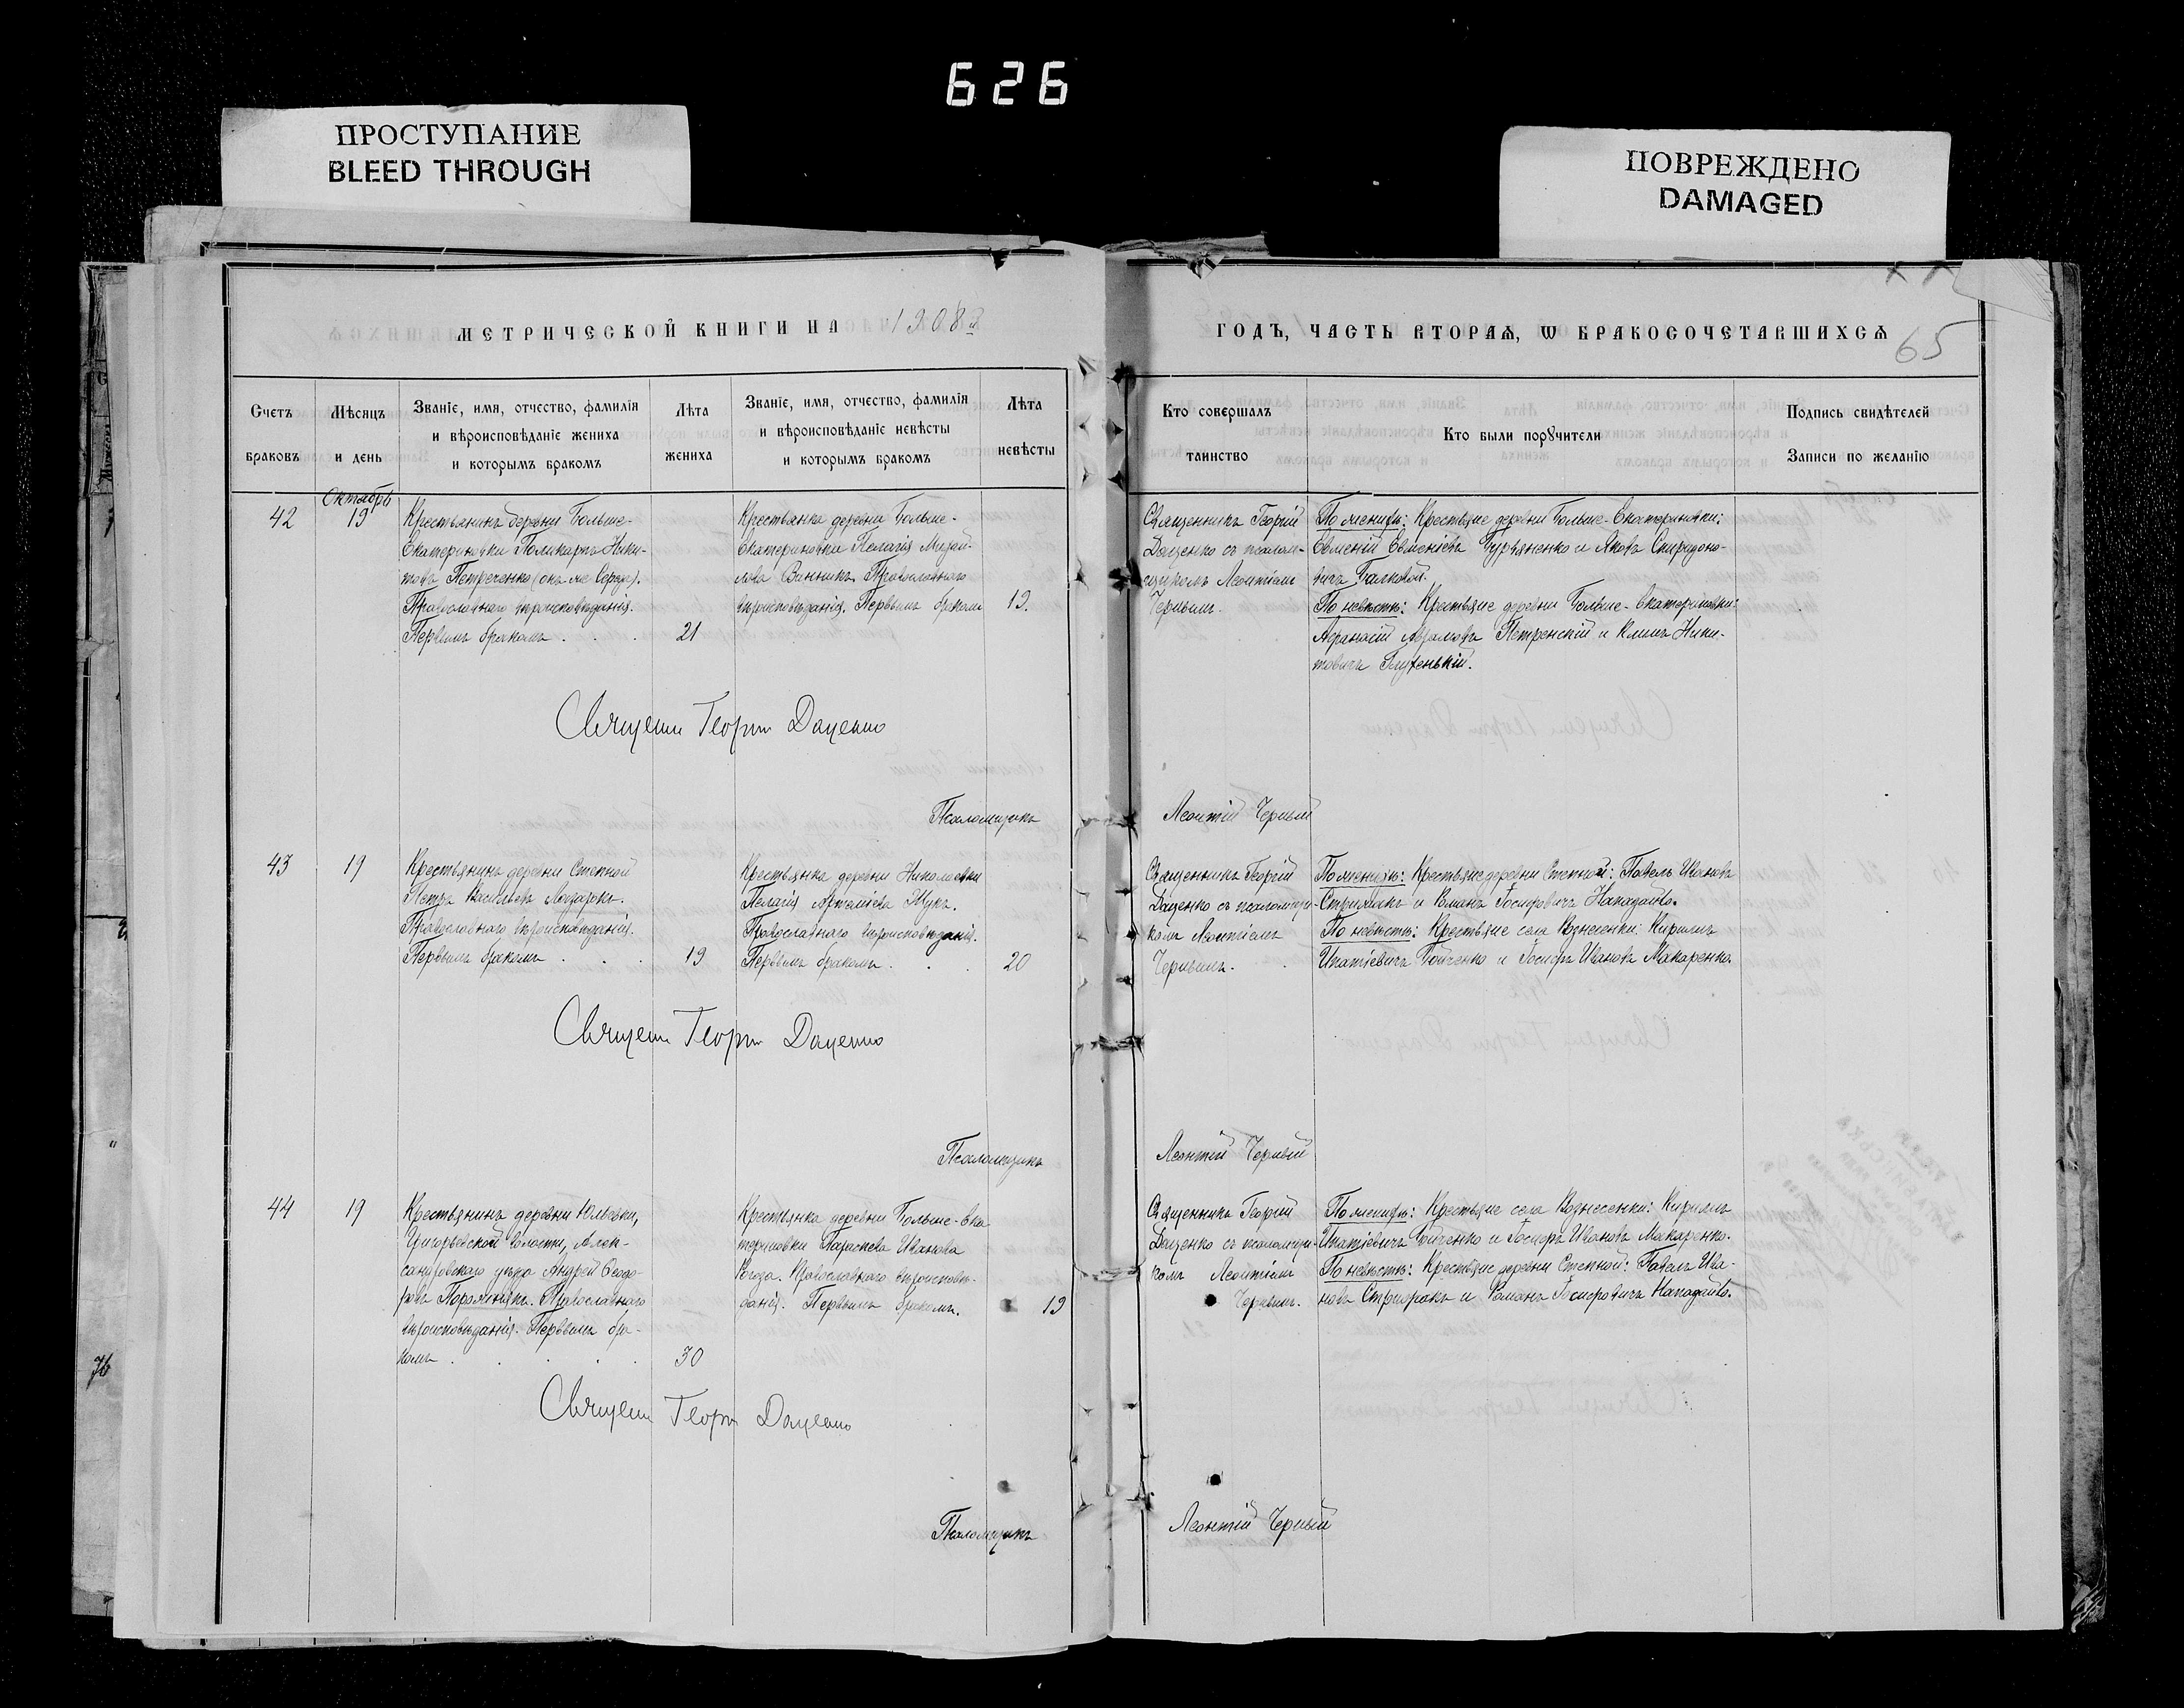 626
ПРОСТУПАНИЕ
BLEED THROUGH
ПОВРЕЖДЕНО
DAMAGED
МЕТРИЧЕСКОЙ КНИГИ НА 1908й
Счетъ браковъ
Мѣсяцъ и день
Званіе, имя, отчество, фамилія
и вѣроисповѣданіе жениха
и которымъ бракомъ
Лѣта жениха
Званіе, имя, отчество, фамилія
и вѣроисповѣданіе невѣсты
и которымъ бракомъ
Лѣта невѣсты
Октябрь
42
19
Крестьянинъ деревни Больше-
Екатериновки Поликарпъ Ники-
товъ Петреченко (онъ же Серед).
Православнаго вѣроисповѣданія.
Первымъ бракомъ . . .
21
Крестьянка деревни Больше-
Екатериновки Пелагія Михай-
лова Винникъ. Православнаго
вѣроисповѣданія. Первымъ бракомъ
19.
Священ Георгій Даценко
Псаломщикъ
43
19
Крестьянинъ деревни Степной
Петръ Васильевъ
Православнаго вѣроисповѣданія.
Первымъ бракомъ . . .
19
Крестьянка деревни Николаевки
Пелагія Артеміева Жукъ.
Православнаго вѣроисповѣданія.
Первымъ бракомъ . . .
20
Священ Георгій Даценко
Псаломщикъ
44
19
Крестьянинъ деревни Юльевки,
Григорьевской волости, Алек-
сандровскаго уѣзда Андрей Ѳеодо-
ровъ Православнаго
вѣроисповѣданія. Первымъ бра-
комъ . . . .
30
Крестьянка деревни Больше-Ека
териновки Параскева Иванова
Рогоза. Православнаго вѣроисповѣ-
данія. Первымъ бракомъ.
19
Священ Георгій Даценко
Псаломщикъ
ГОДЪ, ЧАСТЬ ВТОРАЯ, Ѡ БРАКОСОЧЕТАВШИХСѦ
65
Кто совершалъ таинство
Кто были порꙋчители
Подпись свидѣтелей
Записи по желанію
Священникъ Георгій
Даценко съ псалом-
щикомъ Леонтіемъ
Чернымъ.
По женихѣ: Крестьяне деревни Больше-Екатериновки:
Евменій Евменіевъ Гурьяненко и Яковъ Спиридоно-
вичъ Балковой.
По невѣстѣ: Крестьяне деревни Больше-Екатериновки:
Аѳанасій Петренскій и Климъ Ники-
товичъ
Леонтій Черный
Священникъ Георгій
Даценко съ псаломщи-
комъ Леонтіемъ
Чернымъ.
По женихѣ: Крестьяне деревни Степной: Павелъ Ивановъ
Стрижакъ и Романъ Іосифовичъ Нападайло.
По невѣстѣ: Крестьяне села Вознесенки: Кириллъ
Ипатіевичъ Бойченко и Іосифъ Ивановъ Макаренко.
Леонтій Черный
Священникъ Георгій
Даценко съ псаломщи-
комъ Леонтіемъ
Чернымъ.
По женихѣ: Крестьяне села Вознесенки: Кириллъ
Ипатіевичъ Бойченко и Іосифъ Ивановъ Макаренко.
По невѣстѣ: Крестьяне деревни Степной: Павелъ Ива-
новъ Стрижакъ и Романъ Іосифовичъ Нападайло.
Леонтій Черный
76